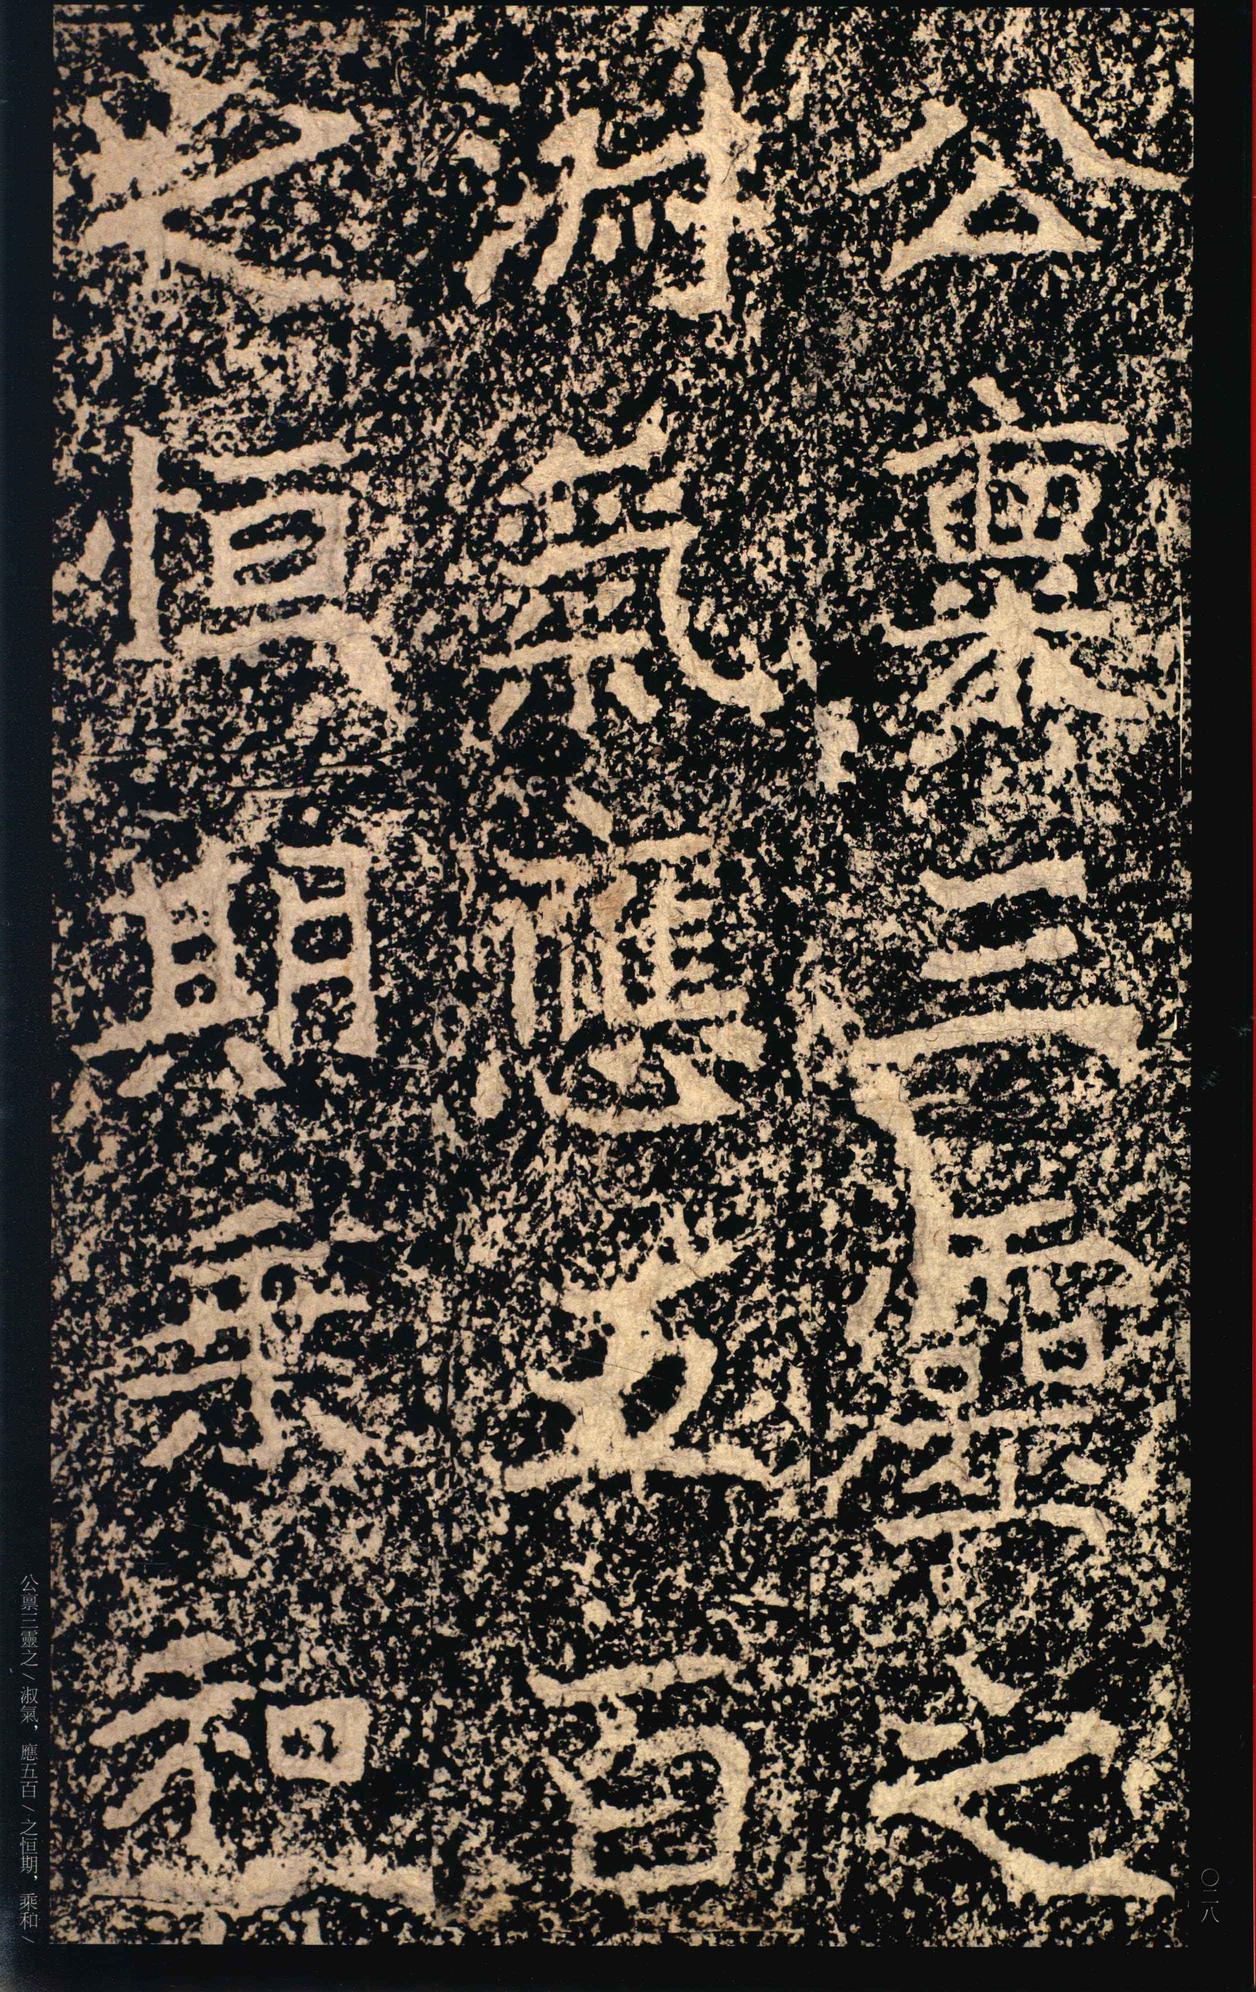 公禀三靈之
淑氣應五百
之恒期乘和
公禀三靈之/淑氣，應五百/之恒期，乘和/
〇二八